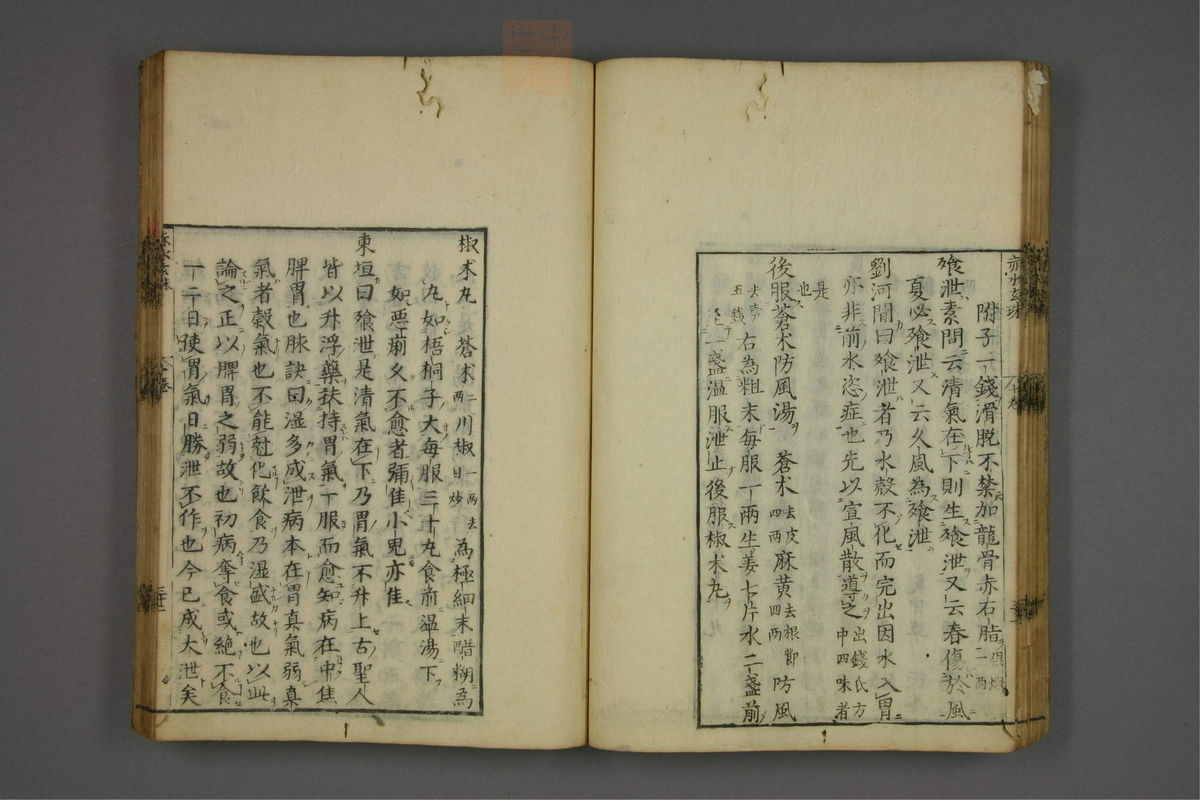 附子一錢滑脫不禁加龍骨赤石脂一兩俱煅
飧泄素問云清氣在下則生飧泄又云春傷於風
夏必飧泄又云久風為飧泄
劉河間曰飧泄者乃水穀不化而完出因水入胃
亦非前水恣症也先以宣風散導之出錢氏方中四味者
是也
後服蒼朮防風湯 蒼朮去皮四兩麻黃去根節四兩防風
去蘆五錢右為粗末每服一兩生姜七片水二盞煎
至一盞温服泄止後服椒朮丸
椒朮丸 蒼朮二兩川椒一兩去目炒為極細末醋糊為
丸如梧桐子大每服三十丸食前温湯下
如惡痢久不愈者彌佳小兒亦佳
東垣曰飧泄是清氣在下乃胃氣不升上古聖人
皆以升浮藥扶持胃氣一服而愈知病在中焦
脾胃也脉訣曰湿多成泄病本在胃真氣弱真
氣者穀氣也不能尅化飲食乃湿盛故也以此
論之正以脾胃之弱故也初病奪食或絕不食
一二日使胃氣日勝泄不作也今已成大泄矣